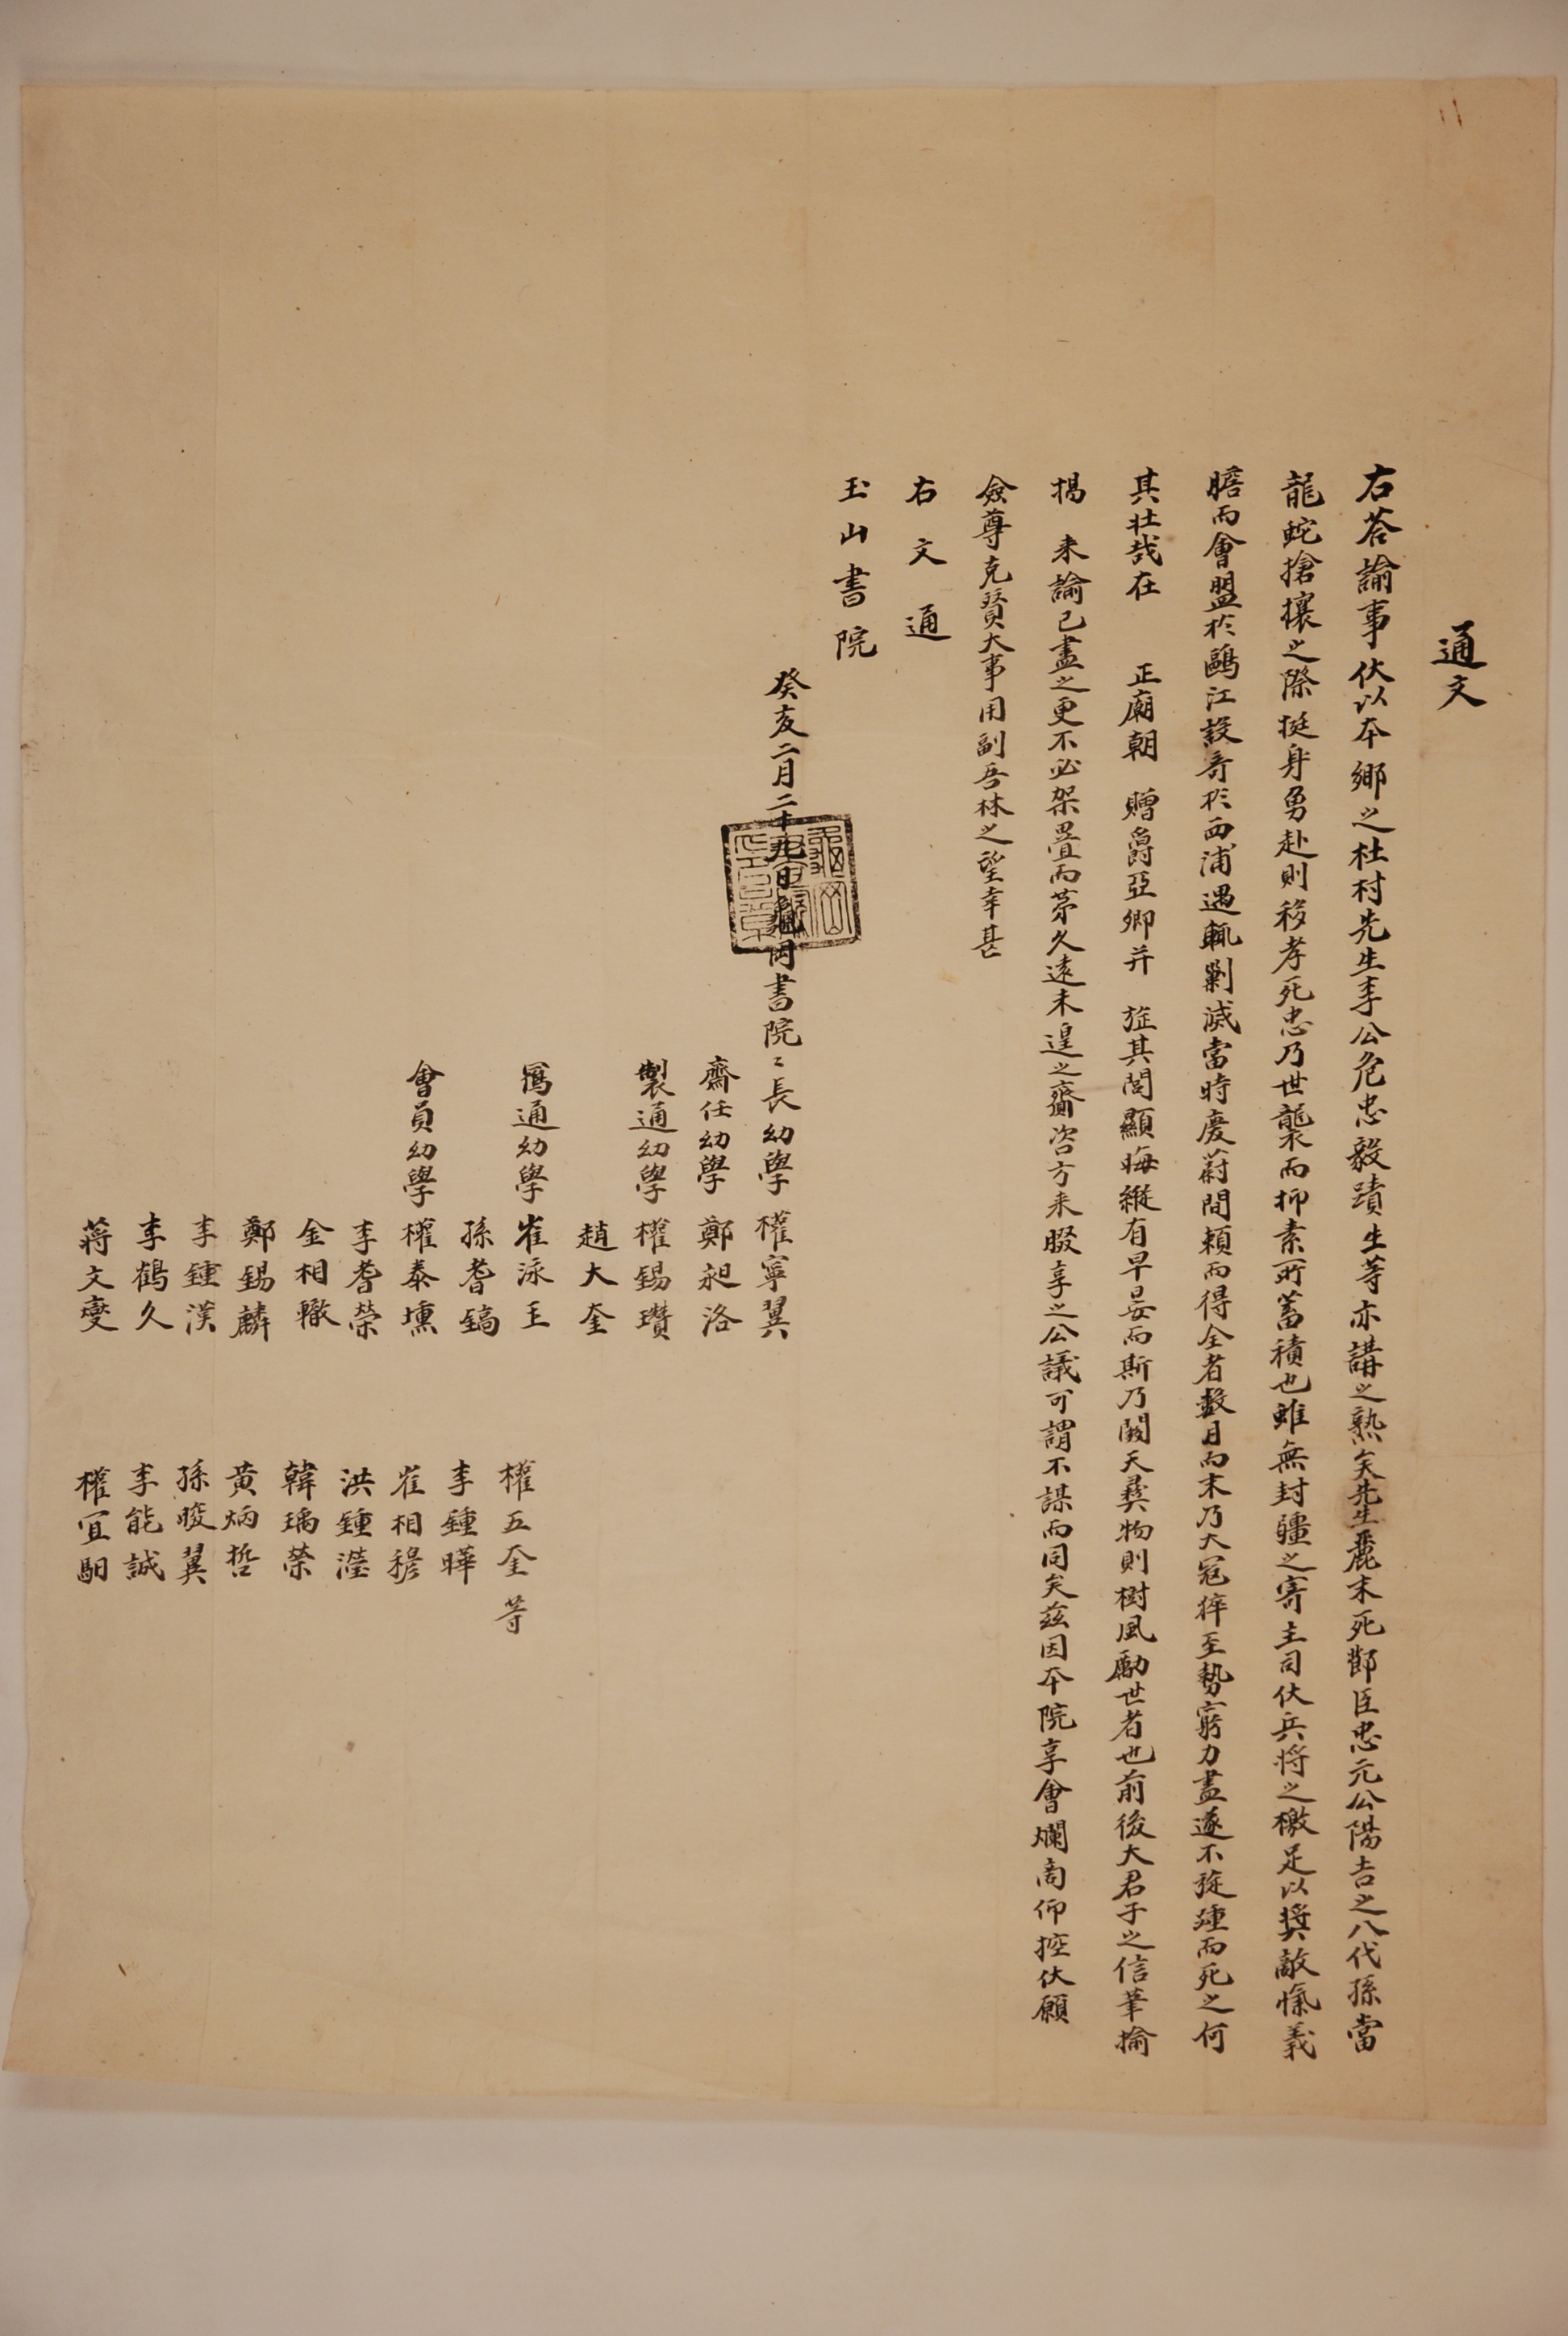 通文
右荅諭事伏以本鄉之杜村先生李公危忠毅蹟生等亦講之熟矣先生麗末死節臣忠元公陽吉之八代孫當
龍蛇搶攘之際挺身勇赴則移孝死忠乃世襲而抑素所蓄積也雖無封疆之寄主司伏兵將之檄足以奬敵愾義
膽而會盟於鷗江設奇於西浦遇輒剿滅當時慶蔚間賴而得全者數月而末乃大寇猝至勢窮力盡遂不旋踵而死之何
其壯哉在 正廟朝 贈爵亞卿并 旌其閭顯晦縱有早晏而斯乃闕天彛物則樹風勵世者也前後大君子之信筆揄
揚 来諭已盡之更不必架疊而第久遠未遑之齎咨方来腏享之公議可謂不謀而同矣玆因本院享會爛商仰控伏願
僉尊克賛大事用副吾林之望幸甚
右文通
玉山書院
癸亥二月二十九日龜岡書院〻長幼學 權寧翼
齋任幼學 鄭昶洛
製通幼學 權錫瓚
趙大奎
寫通幼學 崔泳王
孫耆鎬
會員幼學 權泰壎
李耆榮
金相轍
鄭錫麟
李鍾漢
李鶴久
蔣文燮
權五奎 等
李鍾曄
崔相穆
洪鍾瀅
韓瑀榮
黄炳哲
孫晙翼
李能誠
權宜馹